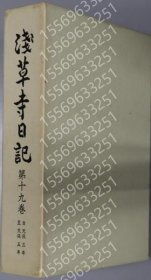 淺草寺日記
第十九卷
15569633251
15569633251
15569633251
15569633251
15569633251
15569633251
15569633251
15569633251